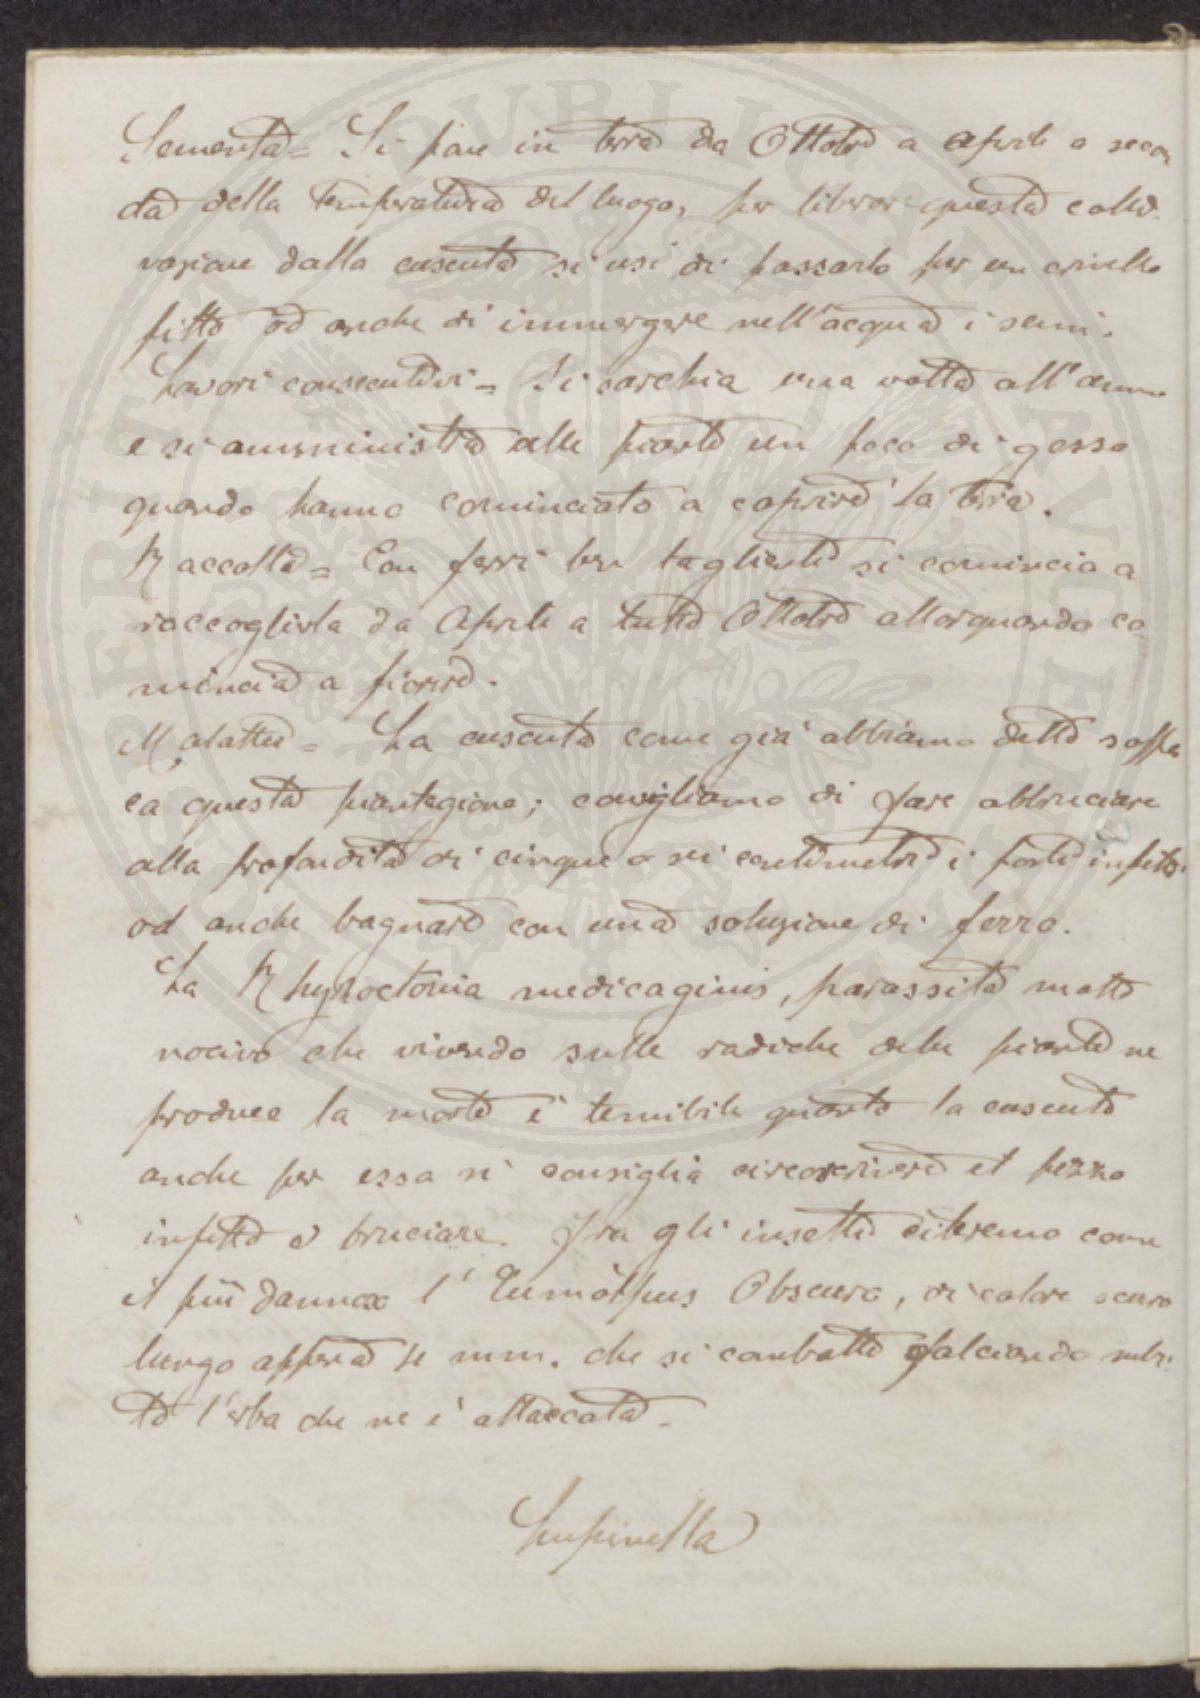 Sementa = Si pone in terra da Ottobre a Aprile a secon
da della temperatura del luogo, per liberare questa colti
vazione dalla cuscuta si usi di passarlo per un crivello
fitto od anche di immergere nell'acqua i semi.
Lavori consecutivi = Si sarchia una volta all'anno
e si amministra alle piante un poco di gesso
quando hanno cominciato a coprire la terra.
Raccolta = Con ferri ben taglienti si comincia a
raccoglierla da Aprile a tutto Ottobre allorquando co
mincia a fiorire.
Malattie = La cuscuta come già abbiamo detto soffo
ca questa piantagione; consigliamo di fare abbruciare
alla profondità di cinque o sei centimetri i posti infetti
od anche bagnare con una soluzione di ferro.
La Rhyzoctonia medicaginis, parassita molto
nocivo che vivendo sulle radiche delle piante ne
produce la morte è temibile quanto la cuscuta
anche per essa si consiglia circoscrivere il pezzo
infetto e bruciare. Fra gli insetti citeremo come
il più dannoso l'Eumolpus Obscuro, di colore scuro
lungo appena 4 mm. che si combatte falciando subi
to l'erba che ne è attaccata.
Lupinella
PVBLICAE